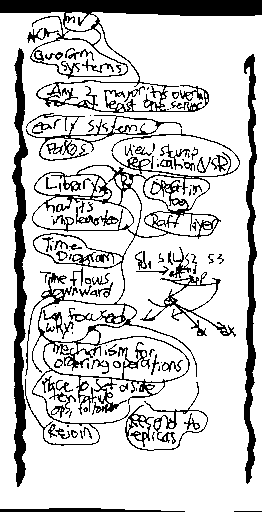 MV
Quorum
systems
Any 2 majorities overlap
at least one server
early systems
Paxos
view stamp
replication VSR
Library
how it's
implemented
Raft layer
Time
Diagram
S1 S2 S3
Time flows
downward
Log focused
why?
mechanism for
ordering operations
place to set aside
tentative
ops, follower
Rejoin
resend to
replicas